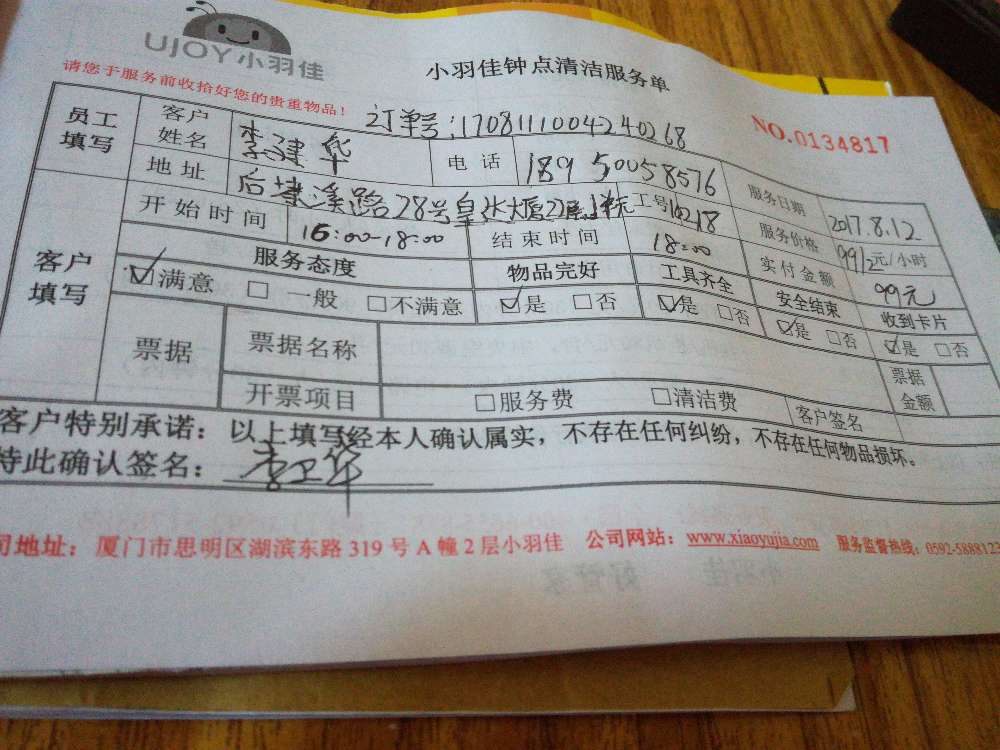 UJOY小羽佳
小羽佳钟点清洁服务单
请您于服务前收拾好您的贵重物品!
订单号:1708111004240268
NO.0134817
员工填写
客户姓名 李建华 电话 18950058576 服务日期 2017.8.12
地址 后埭溪路28号皇达大厦22层 单元 工号 10218 服务价格 99/2元/小时
开始时间 16:00-18:00 结束时间 18:00 实付金额 99元
客户填写
服务态度 物品完好 工具齐全 安全结束 收到卡片
☑满意 □一般 □不满意 ☑是 □否 ☑是 □否 ☑是 □否 ☑是 □否
票据 票据名称 票据金额
开票项目 □服务费 □清洁费 客户签名
客户特别承诺:以上填写经本人确认属实,不存在任何纠纷,不存在任何物品损坏。
特此确认签名:
司地址:厦门市思明区湖滨东路319号A幢2层小羽佳 公司网站:www.xiaoyujia.com 服务监督热线:0592-5888123